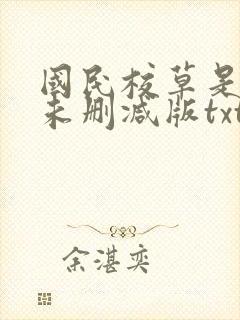 國民校草是
未删减版txt
余湛奕